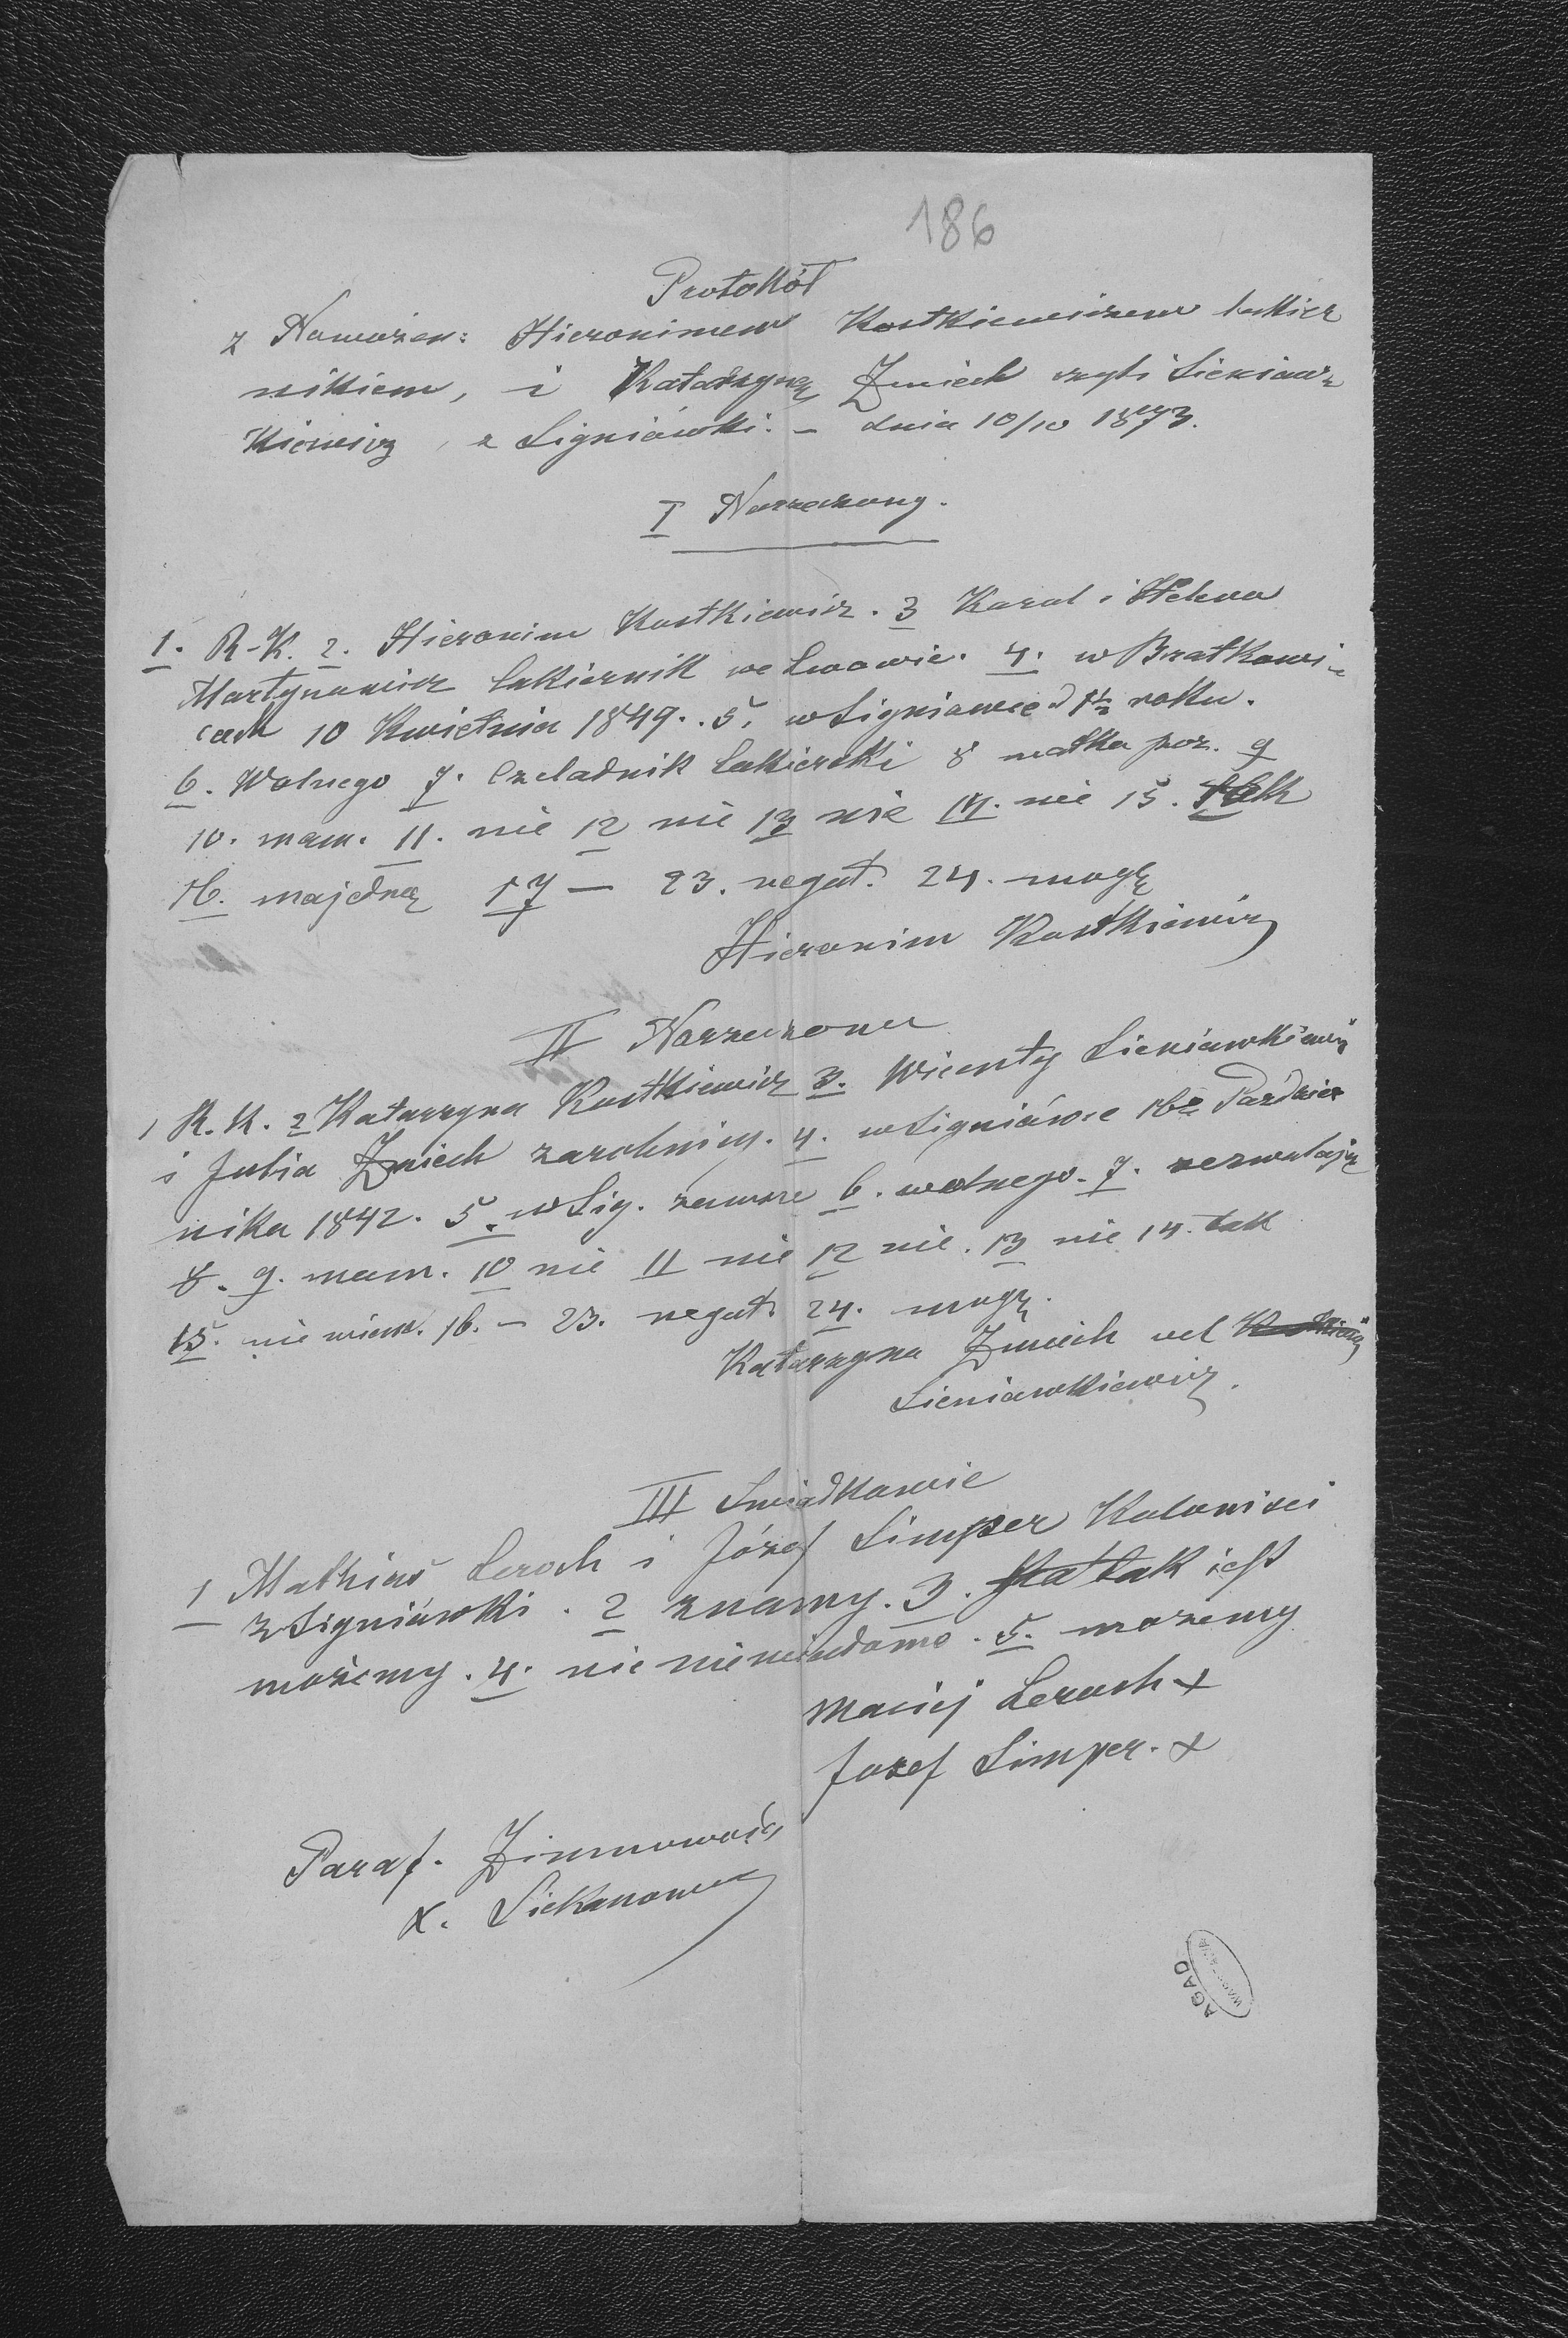 186
Protokół
z Narzecz: Hieronimem Kostkiewiczem lakier
nikiem, i Katarzyną Zmiech czyli Sieniaw=
kiewicz, z Signiówki. – dnia 10/10 1873.
I Narzeczony.
1. R-K. 2. Hieronim Kostkiewicz. 3 Karol i Helena
Martynowicz lakiernik we Lwowie. 4. w Bratkowi-
cach 10 Kwietnia 1849. 5. w Signiowce od roku.
6. Wolnego 7. Czeladnik lakierski 8 matka poz. 9
10. mam. 11. nie 12 nie 13 nie 14. nie 15. tak
16. majedną 17 — 23. negat. 24. mogę
Hieronim Kostkiewicz
II Narzeczona
1 R. K. 2 Katarzyna Kostkiewicz 3. Wicenty Sieniawkiewicz
i Julia Zmiech zarobnicy. 4. w Signiówce 16go Paździer
nika 1842. 5. w Sig. zawsze 6. wolnego. 7. zezwalają
8. 9. mam. 10 nie 11 nie 12 nie. 13 nie 14. tak
15. nie wiem. 16. – 23. negat. 24. mogę.
Katarzyna Zmiech vel
Sieniawkiewicz.
III Swiadkowie
1 Mathias Lerch i Józef Simper Koloniści
z Signiówki. 2 znamy. 3. tak jest
możemy. 4. nic niewiadomo. 5. możemy
Maciej Lerach +
Jozef Simper. +
Paraf. Zimnowoda
X. Siekanowicz
AGAD
WARSZAWA